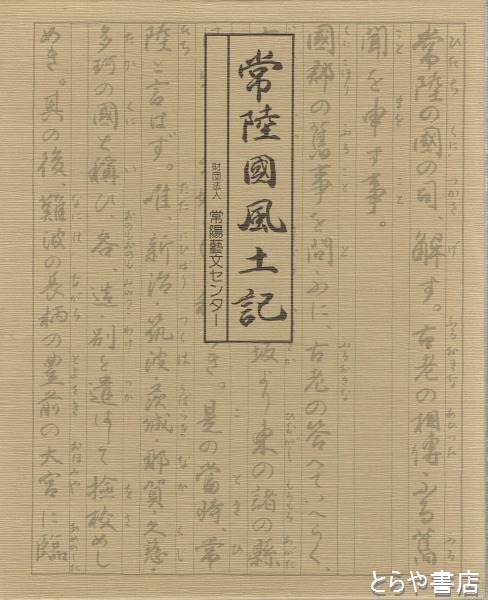 常陸國風土記
財団法人 常陽藝文センター
常陸の國の司、解す。古老の相傳ふる舊
聞を申す事。
國郡の舊事を問ふに、古老の答へていへらく、
坂より東の諸の縣
き。是の當時、常
陸と言はず。唯、新治・筑波・茨城・那賀・久慈・
多珂の國と稱ひ、各、造・別を遣はして檢校めし
めき。其の後、難波の長柄の豊前の大宮に臨
とらや書店